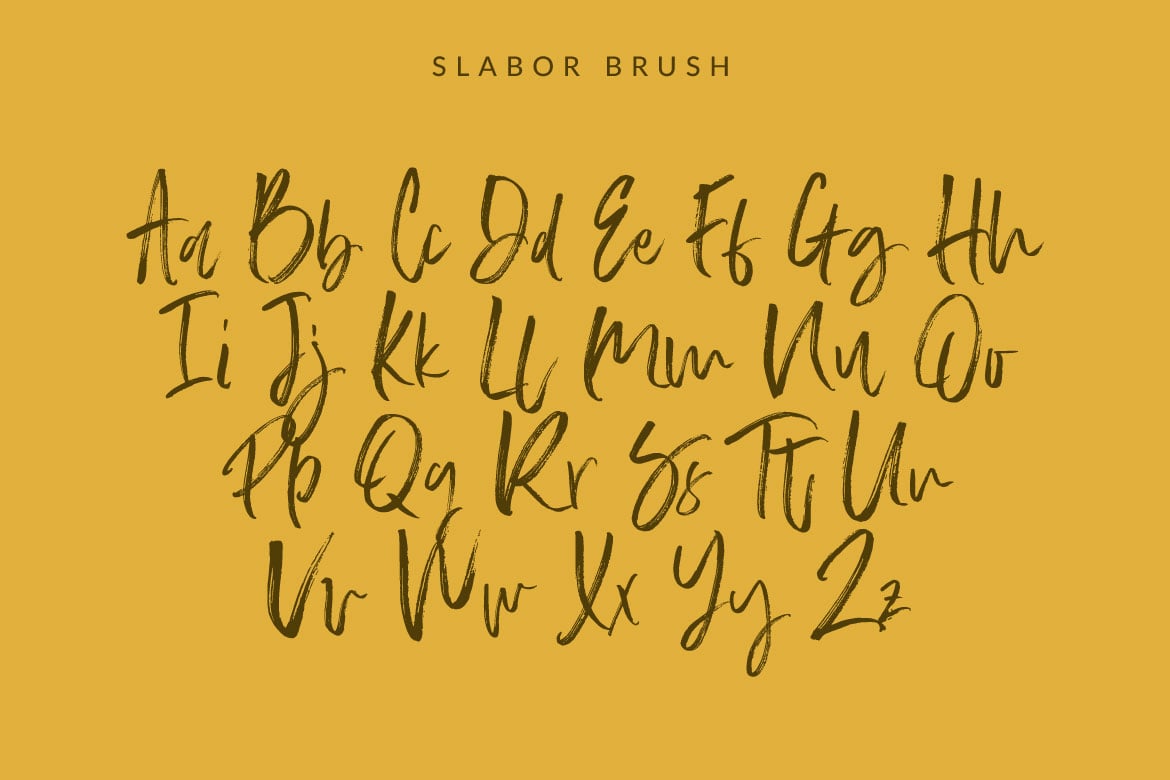 SLABOR BRUSH
Aa Bb Cc Dd Ee Ff Gg Hh
Ii Jj Kk Ll Mm Nn Oo
Pp Qq Rr Ss Tt Uu
Vv Ww Xx Yy Zz